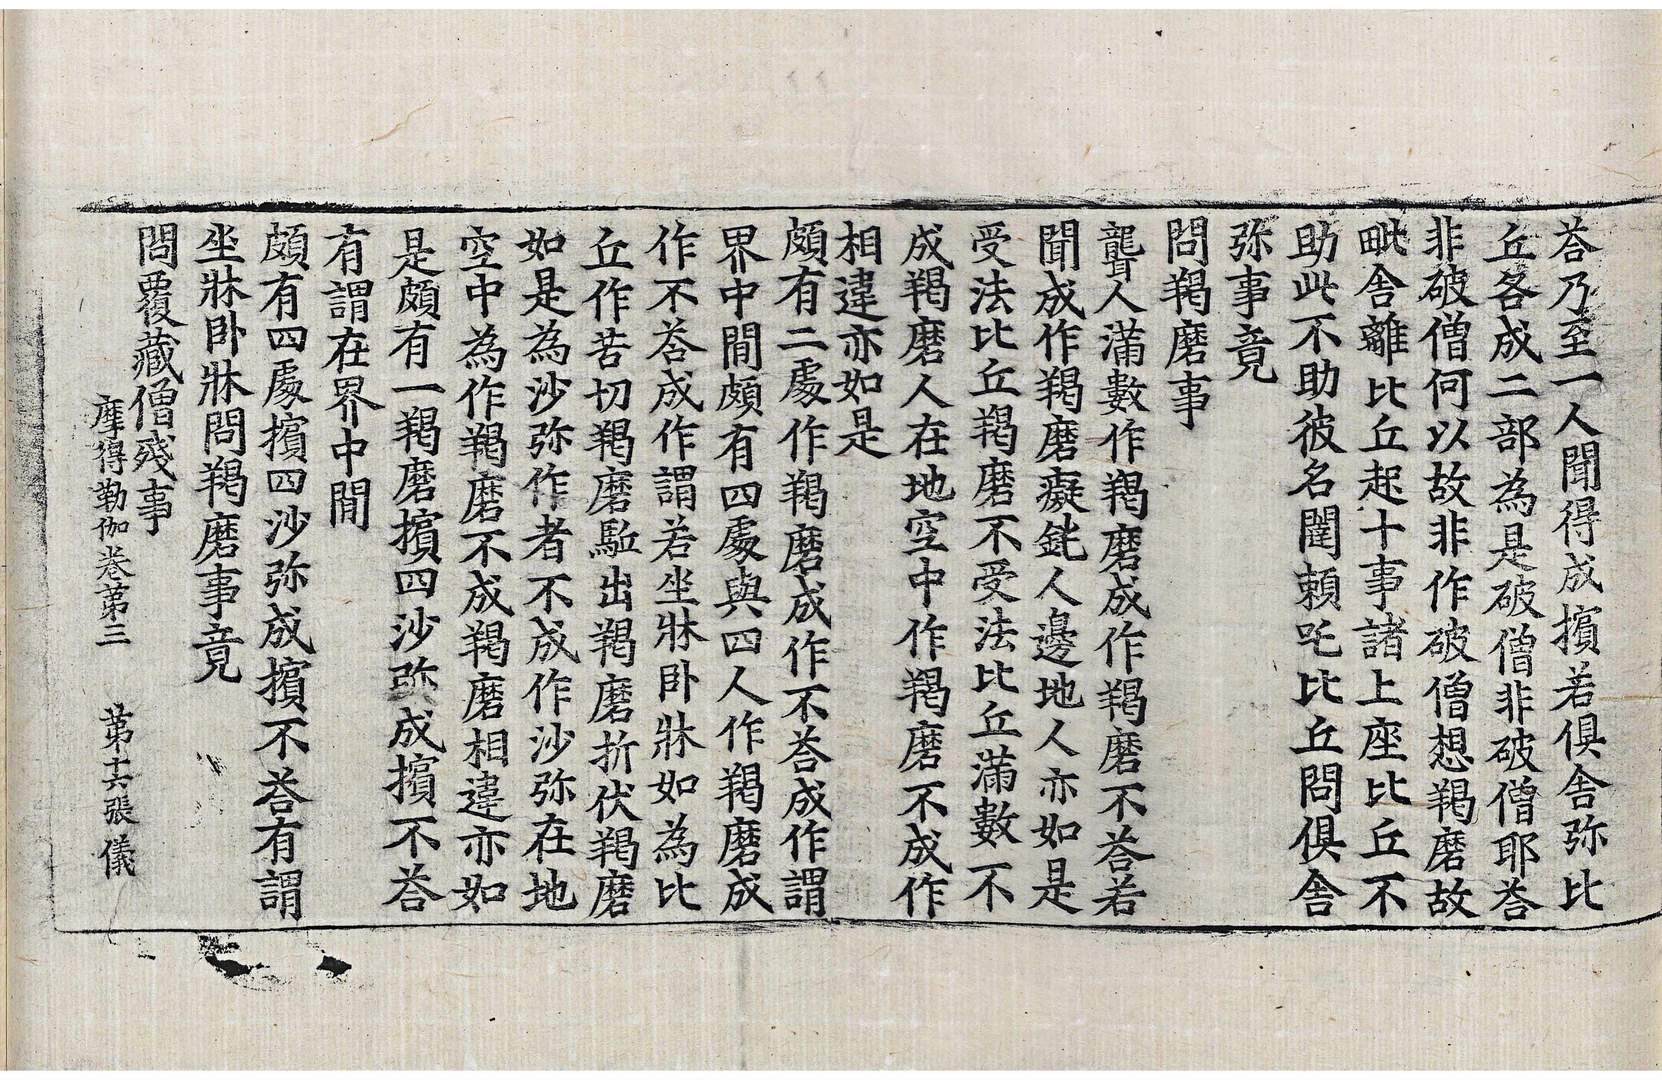 荅乃至一人聞得成擯若俱舍弥比
丘各成二部為是破僧非破僧耶荅
非破僧何以故非作破僧想羯磨故
毗舍離比丘起十事諸上座比丘不
助此不助彼名闥賴吒比丘問俱舍
弥事竟
問羯磨事
聾人滿數作羯磨成作羯磨不荅若
聞成作羯磨癡鈍人邊地人亦如是
受法比丘羯磨不受法比丘滿數不
成羯磨人在地空中作羯磨不成作
相違亦如是
頗有二處作羯磨成作不荅成作謂
界中間頗有四處與四人作羯磨成
作不荅成作謂若坐牀卧牀如為比
丘作苦切羯磨駈出羯磨折伏羯磨
如是為沙弥作者不成作沙弥在地
空中為作羯磨不成羯磨相違亦如
是頗有一羯磨擯四沙弥成擯不荅
有謂在界中間
頗有四處擯四沙弥成擯不荅有謂
坐牀卧牀問羯磨事竟
問覆藏僧殘事
摩得勒伽卷第三 第十六張 儀